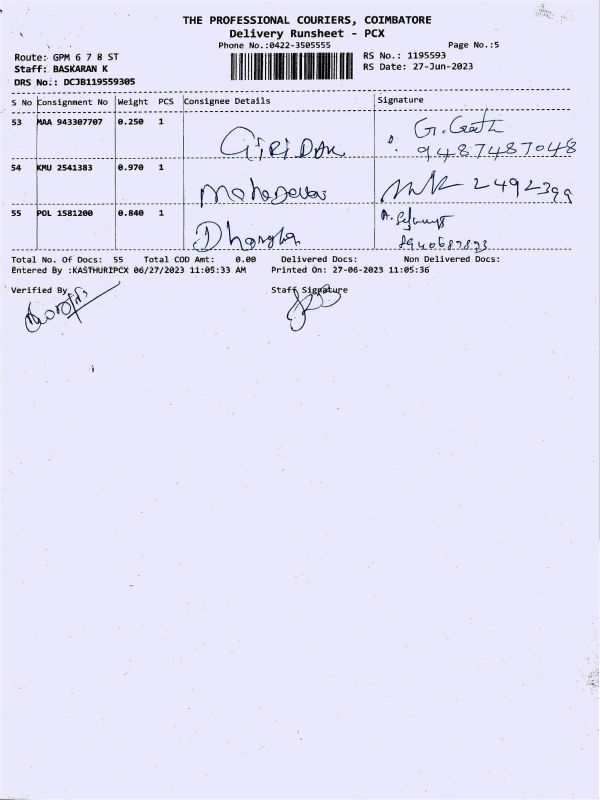 THE PROFESSIONAL COURIERS, COIMBATORE
Delivery Runsheet - PCX
Phone No.:0422-3505555 Page No.:5
Route: GPM 6 7 8 ST RS No.: 1195593
Staff: BASKARAN K RS Date: 27-Jun-2023
DRS No.: DCJB119559305
S No Consignment No Weight PCS Consignee Details Signature
53 MAA 943307707 0.250 1 GiRiDAR G. Geeth
9487487048
54 KMU 2541383 0.970 1 Mahadevan 2492399
55 POL 1581200 0.840 1
Total No. Of Docs: 55 Total COD Amt: 0.00 Delivered Docs: Non Delivered Docs:
Entered By :KASTHURIPCX 06/27/2023 11:05:33 AM Printed On: 27-06-2023 11:05:36
Verified By Staff Signature